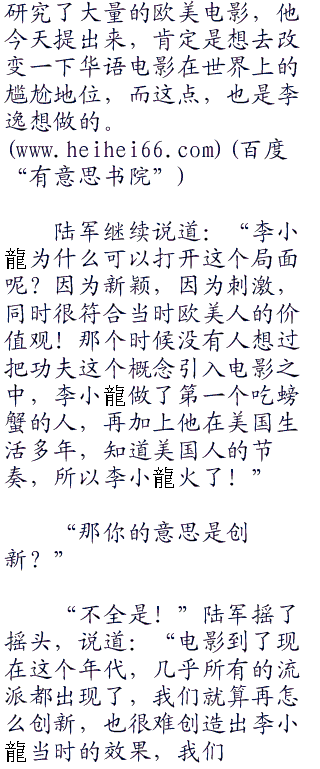 研究了大量的欧美电影，他
今天提出来，肯定是想去改
变一下华语电影在世界上的
尴尬地位，而这点，也是李
逸想做的。
(www.heihei66.com)(百度
“有意思书院”)
陆军继续说道：“李小
龍为什么可以打开这个局面
呢？因为新颖，因为刺激，
同时很符合当时欧美人的价
值观！那个时候没有人想过
把功夫这个概念引入电影之
中，李小龍做了第一个吃螃
蟹的人，再加上他在美国生
活多年，知道美国人的节
奏，所以李小龍火了！”
“那你的意思是创
新？”
“不全是！”陆军摇了
摇头，说道：“电影到了现
在这个年代，几乎所有的流
派都出现了，我们就算再怎
么创新，也很难创造出李小
龍当时的效果，我们